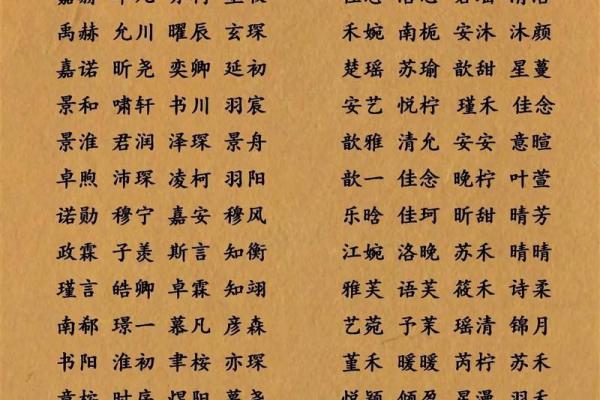 禹赫 允川 曜辰 玄琛 禾婉 南栀 安沐 沐颜
嘉诺 昕尧 奕卿 延初 楚瑶 苏瑜 歆甜 星蔓
景和 啸轩 书川 羽宸 安艺 悦柠 瑾禾 佳念
景淮 君润 泽琛 景舟 歆雅 清允 安安 意暄
卓煦 沛琛 凌柯 羽阳 歆一 佳念 晚柠 叶萱
诺勋 穆宁 嘉安 穆风 乐晗 佳珂 昕甜 晴芳
政霖 子羡 斯言 知衡 江婉 洛晚 苏禾 晴晴
瑾言 皓卿 卓霖 知翊 雅芙 语芙 筱禾 诗柔
南郗 璟一 慕凡 彦森 艺菀 予茉 瑶清 锦月
书阳 淮初 聿桉 亦琛 堇禾 暖暖 芮柠 苏禾